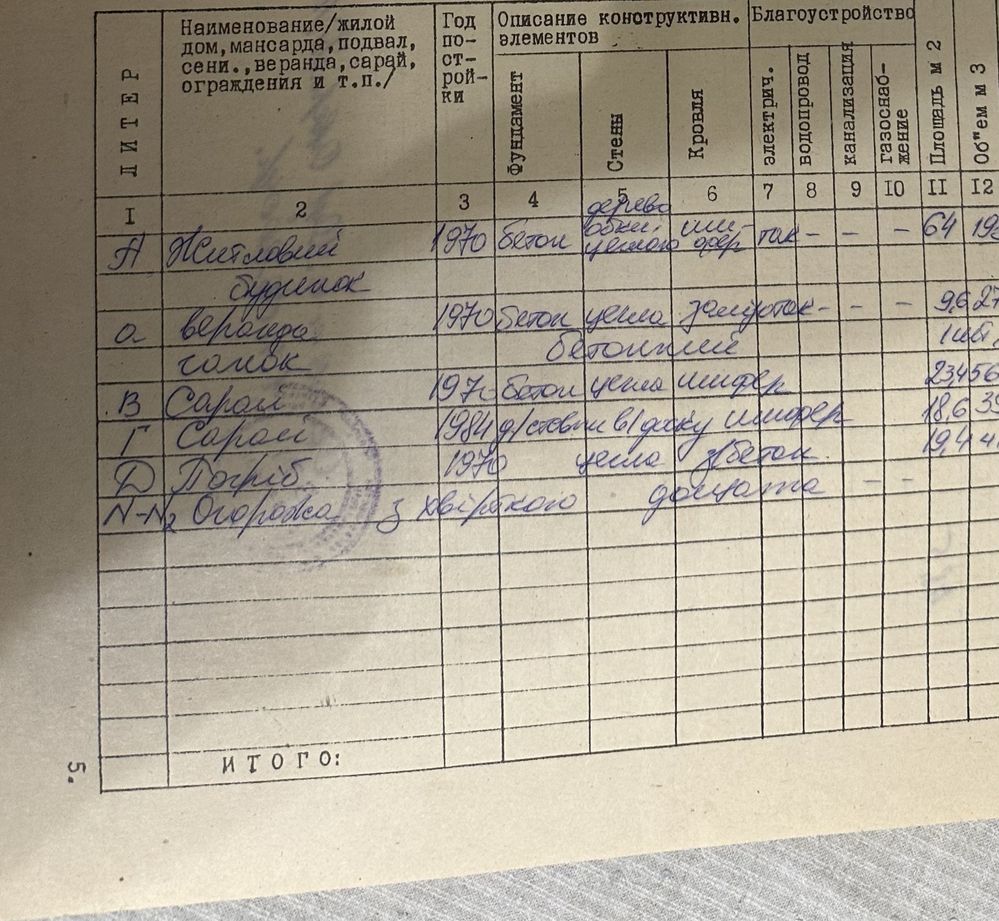 ЛИТЕР
Наименование/жилой
дом,мансарда,подвал,
сени.,веранда,сарай,
ограждения и т.п./
Год
по-
ст-
рой-
ки
Описание конструктивн.
элементов
Фундамент
Стены
Кровля
Благоустройство
электрич.
водопровод
канализация
газоснаб-
жение
Площадь м 2
Об"ем м 3
I 2 3 4 5 6 7 8 9 IO II I2
А Житловий 1970 бетон дерево обкл. цеглою шифер так - - - 64
будинок
а веранда 1970 бетон цегла так - - - 9,6 27
ганок бетонний 1 шт.
В Сарай 197 бетон цегла шифер 23,4 56
Г Сарай 1984 д/стовпи в/дошку шифер 18,6 39
Д Погріб 1970 цегла з/бетон 19,4 4
N-N2 Огорожа з хвірткою дощата - -
ИТОГО:
5.